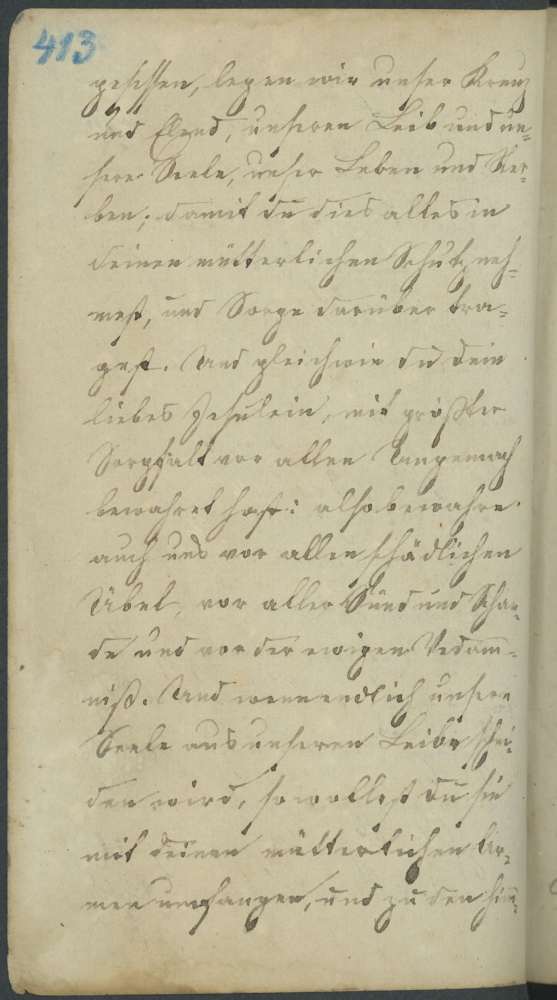 413
gesessen, legen wir unser Kreuz
und Elend, unseren Leib und un=
sere Seele, unser Leben und Ster=
ben; damit du dies alles in
deinen mütterlichen Schutz neh=
mest, und Sorge darüber tra=
gest. Und gleichwie du dein
liebes Jesulein, mit größter
Sorgfalt vor allen Ungemach
bewahret hast: also bewahre
auch uns vor allen schädlichen
Übel, vor aller Sünd und Schan=
de und vor der ewigen Vedam=
niß. Und wenn endlich unsere
Seele aus unseren Leibe schei=
den wird, so wollest du sie
mit deinen mütterlichen Ar=
men umfangen, und zu den him=